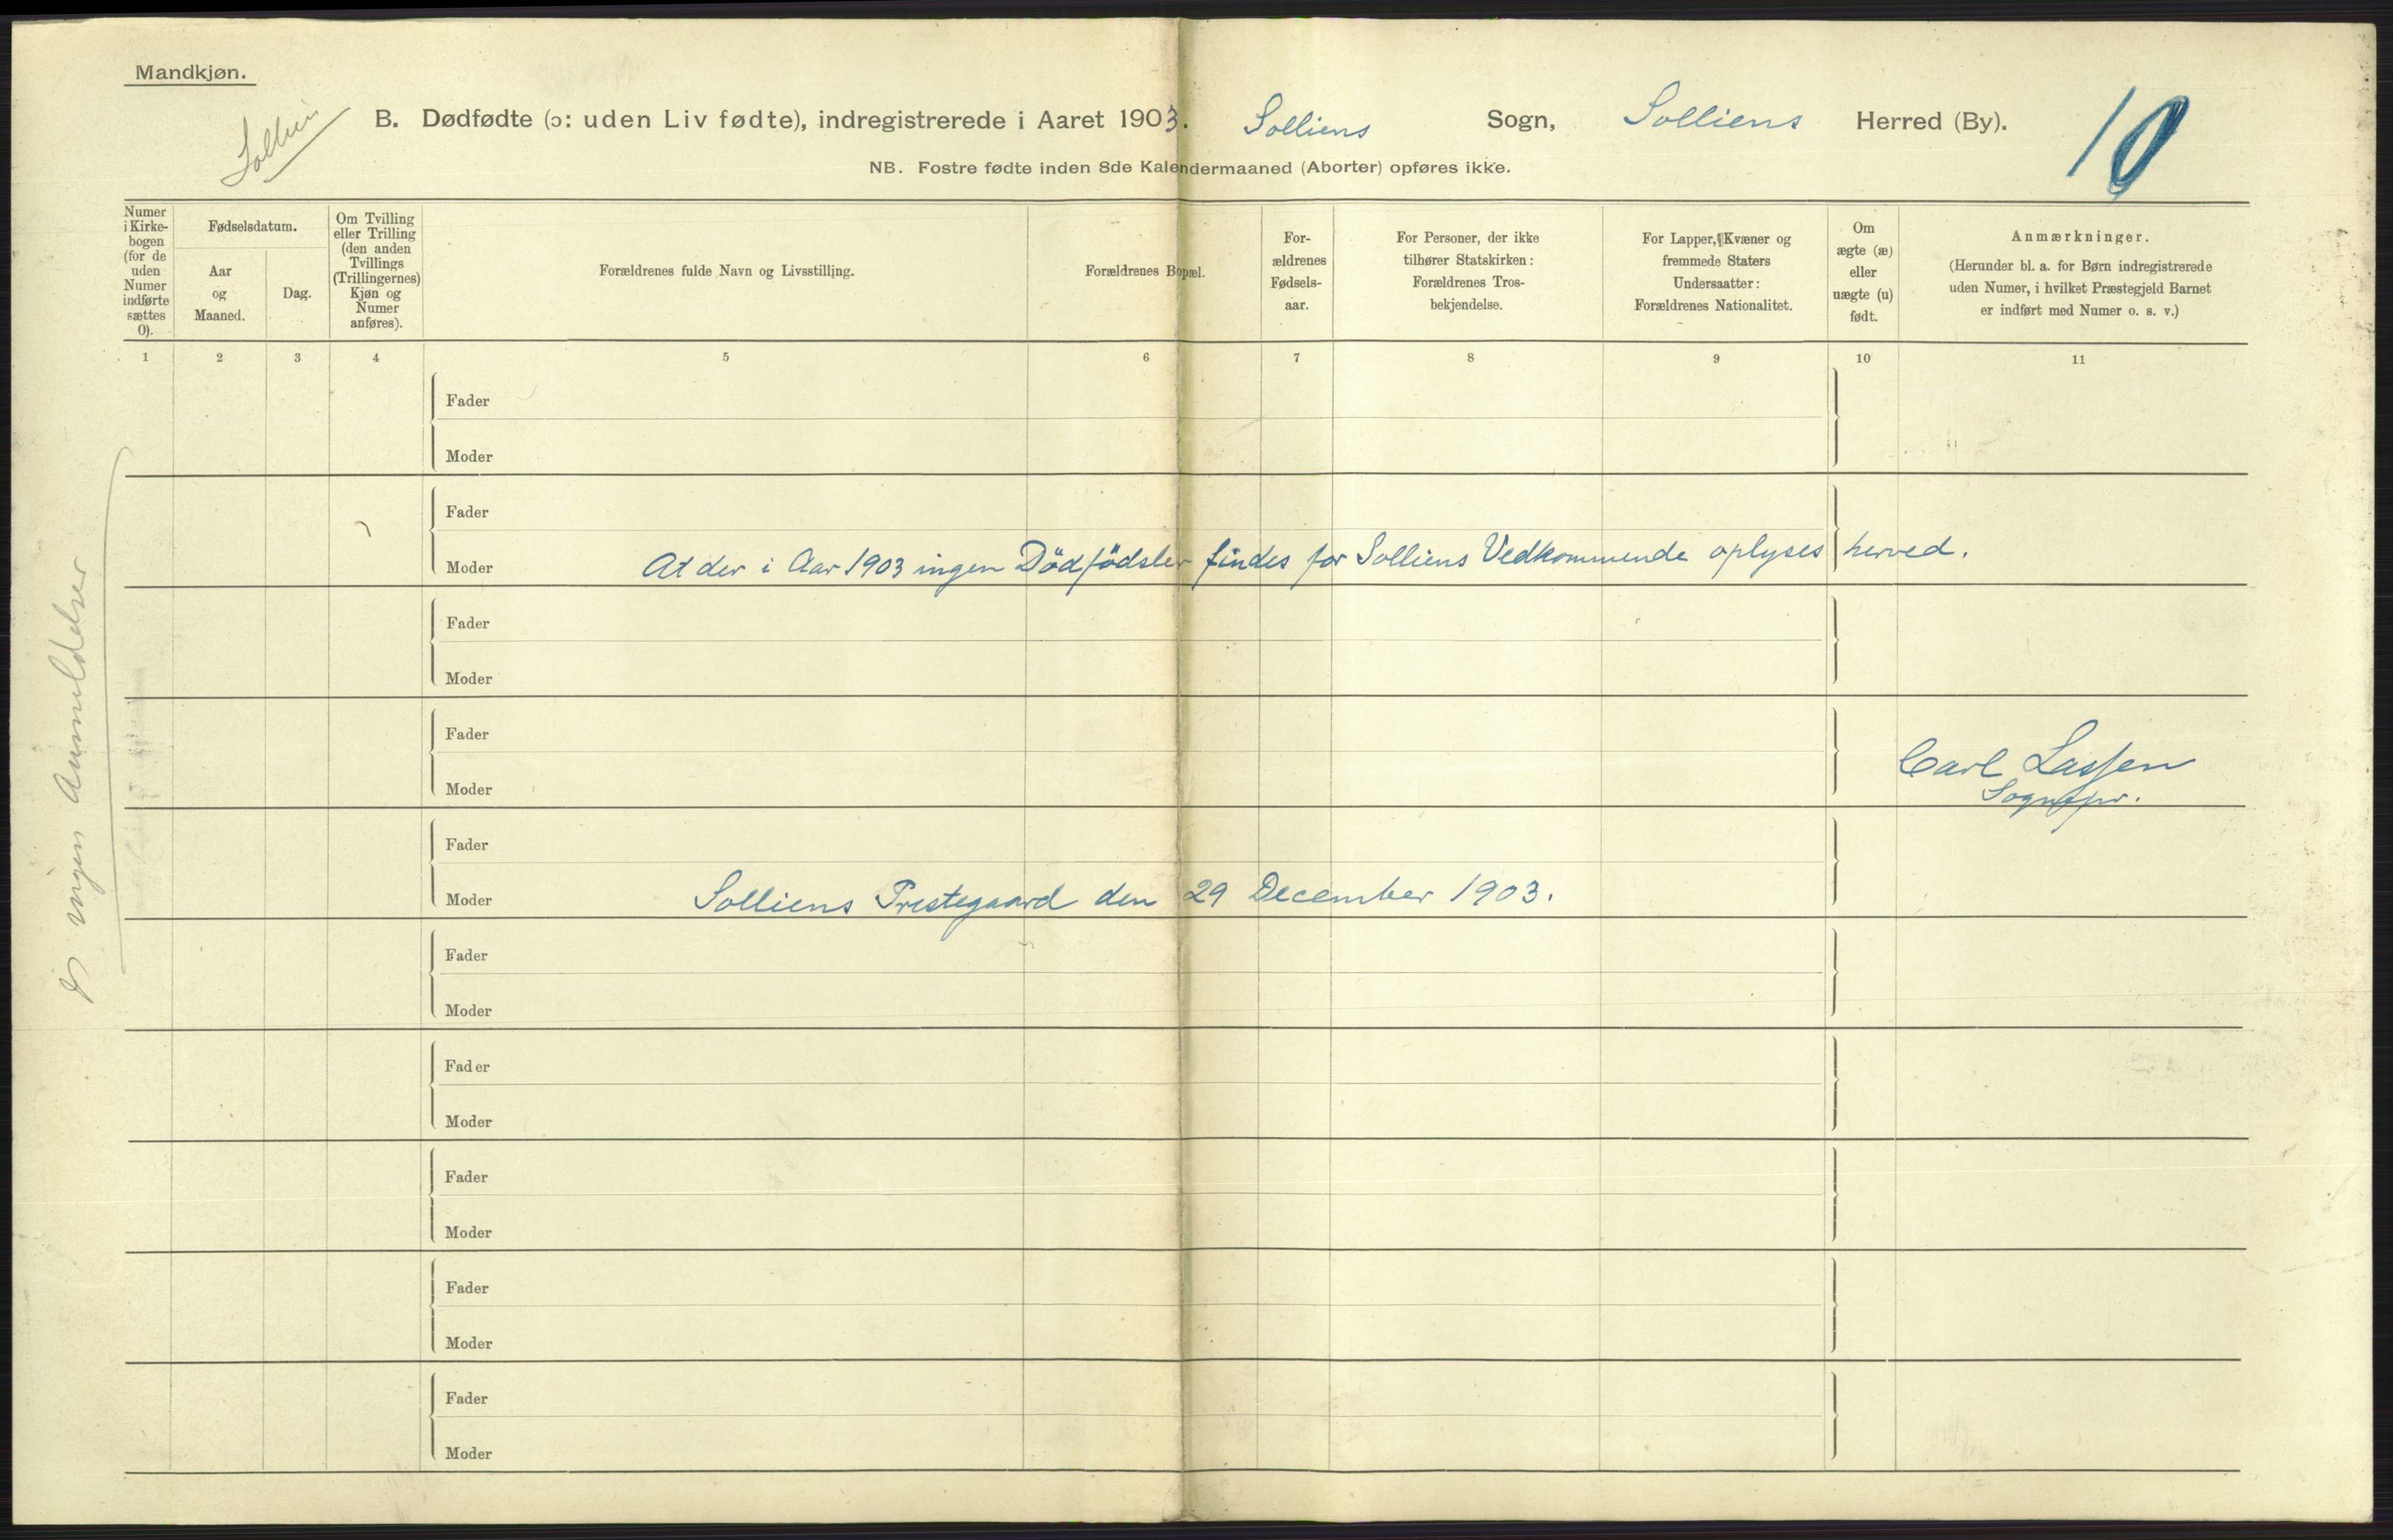 Mandkjøn.
Sollien
B. Dødfødte (ɔ: uden Liv fødte), indregistrerede i Aaret 1903. Solliens Sogn, Solliens Herred (By).
10
NB. Fostre fødte inden 8de Kalendermaaned (Aborter) opføres ikke.
Numer
i Kirke-
bogen
(for de
uden
Numer
indførte
sættes
0).
Fødselsdatum.
Aar
og
Maaned.
Dag.
Om Tvilling
eller Trilling
(den anden
Tvillings
(Trillingernes)
Kjøn og
Numer
anføres).
Forældrenes fulde Navn og Livsstilling.
Forældrenes Bopæl.
For-
ældrenes
Fødsels-
aar.
For Personer, der ikke
tilhører Statskirken:
Forældrenes Tros-
bekjendelse.
For Lapper, Kvæner og
fremmede Staters
Undersaatter:
Forældrenes Nationalitet.
Om
ægte (æ)
eller
uægte (u)
født.
Anmærkninger.
(Herunder bl. a. for Børn indregistrerede
uden Numer, i hvilket Præstegjeld Barnet
er indført med Numer o. s. v.)
1 2 3 4 5 6 7 8 9 10 11
Fader
Moder
Fader
Moder At der i Aar 1903 ingen Dödfödsler findes for Solliens Vedkommende oplyses herved.
Fader
Moder
Fader
Moder
Carl Lassen
Sognepr.
Fader
Moder Solliens Prestegaard den 29 December 1903.
Fader
Moder
Fader
Moder
Fader
Moder
Fader
Moder
Fader
Moder
ingen Anmeldelser